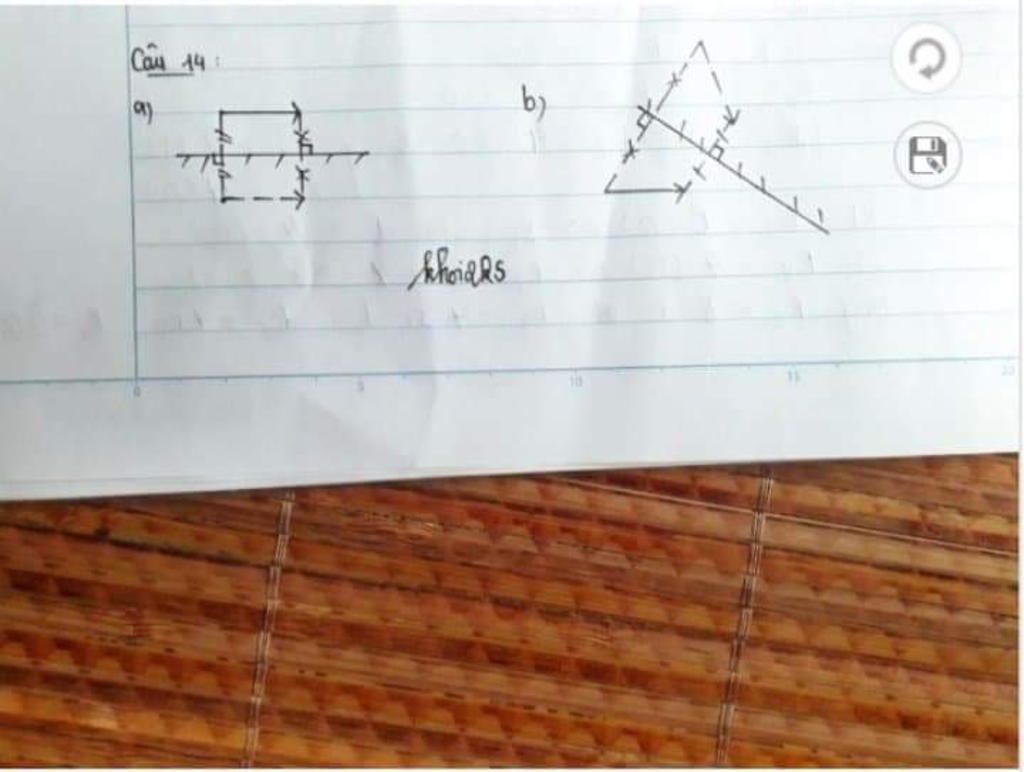 Câu 14:
a)
b)
khoiaks
0 5 10 15 20